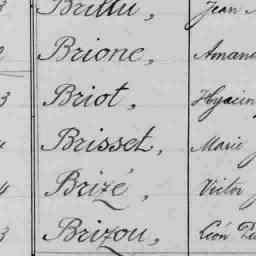 Brillu, Jean
Brione, Amand
Briot, Hyacin
Brisset, Marie
Brizé, Victor
Brizou, Léon